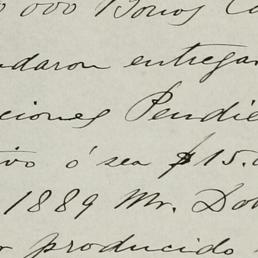 000 Bonos Ca
ndaron entregar
ciones Pendie
tivo ó sea $15.0
1889 Mr. Do
r producido